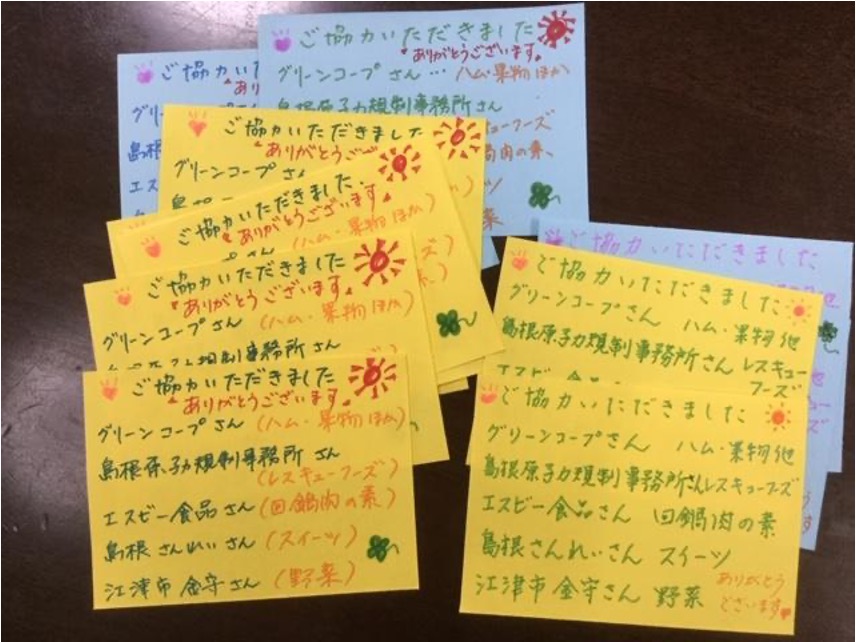 ご協力いただきました
ありがとうございます。
グリーンコープさん… ハム・果物ほか
島根原子力規制事務所さん
ーフーズ
肉の素、
ーツ
菜
ご協力い
あり
グリ
島根
エス
ご協力いただきました
ありがとうござ
グリーンコープさん
ご協力いただきました
ありがとうございます。
プさん (ハム・果物ほか)
ご協力いただきました
ありがとうございます。
グリーンコープさん (ハム・果物ほか)
規制事務所さん
ご協力いただきました
ありがとうございます。
グリーンコープさん (ハム・果物ほか)
島根原子力規制事務所さん
(レスキューフーズ)
エスビー食品さん (回鍋肉の素)
島根さんれいさん (スイーツ)
江津市金守さん (野菜)
ご協力いただきました
ご協力いただきました
グリーンコープさん ハム・果物他
島根原子力規制事務所さん レスキュー
フーズ
エスビー食品
ご協力いただきました
グリーンコープさん ハム・果物他
島根原子力規制事務所さんレスキューフーズ
エスビー食品さん 回鍋肉の素
島根さんれいさん スイーツ
江津市金守さん 野菜 ありがとう
ございます